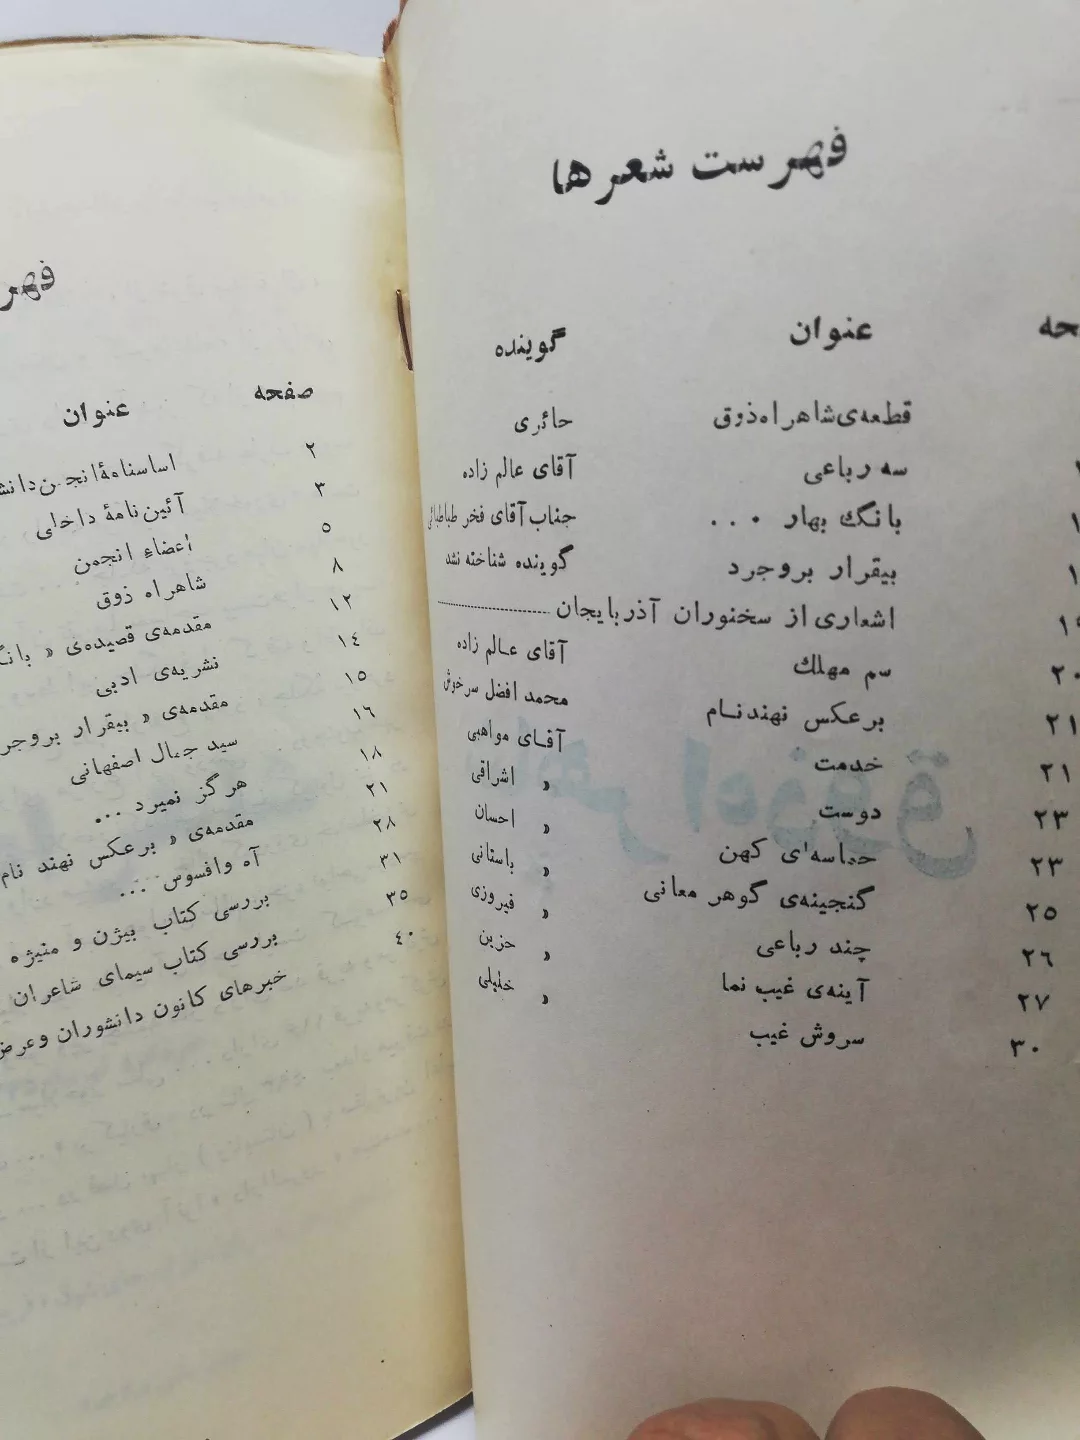 فهرست شعرها
حه عنوان گوینده
قطعه‌ی شاهراه ذوق حائری
سه رباعی آقای عالم زاده
بانگ بهار ... جناب آقای فخر طباطبائی
بیقرار بروجرد گوینده شناخته نشد
اشعاری از سخنوران آذربایجان
۲۰ سم مهلك آقای عالم زاده
۲۱ برعکس نهند نام محمد افضل سرخوش
۲۱ خدمت آقای مواهبی
۲۳ دوست » اشراقی
۲۳ حماسه‌ای کهن » احسان
۲۵ گنجینه‌ی گوهر معانی » باستانی
۲۶ چند رباعی » فیروزی
۲۷ آینه‌ی غیب نما » حزین
۳۰ سروش غیب » خلیلی
فهر
صفحه عنوان
۲ اساسنامهٔ انجمن دانش
۳ آئین نامهٔ داخلی
۵ اعضاء انجمن
۸ شاهراه ذوق
۱۲ مقدمه‌ی قصیده‌ی « بانگ
۱۴ نشریه‌ی ادبی
۱۵ مقدمه‌ی « بیقرار بروجر
۱۶ سید جمال اصفهانی
۱۸ هرگز نمیرد ...
۲۱ مقدمه‌ی « برعکس نهند نام
۲۸ آه وافسوس ...
۳۱ بررسی کتاب بیژن و منیژه
۳۵ بررسی کتاب سیمای شاعران
۴۰ خبرهای کانون دانشوران وعرض